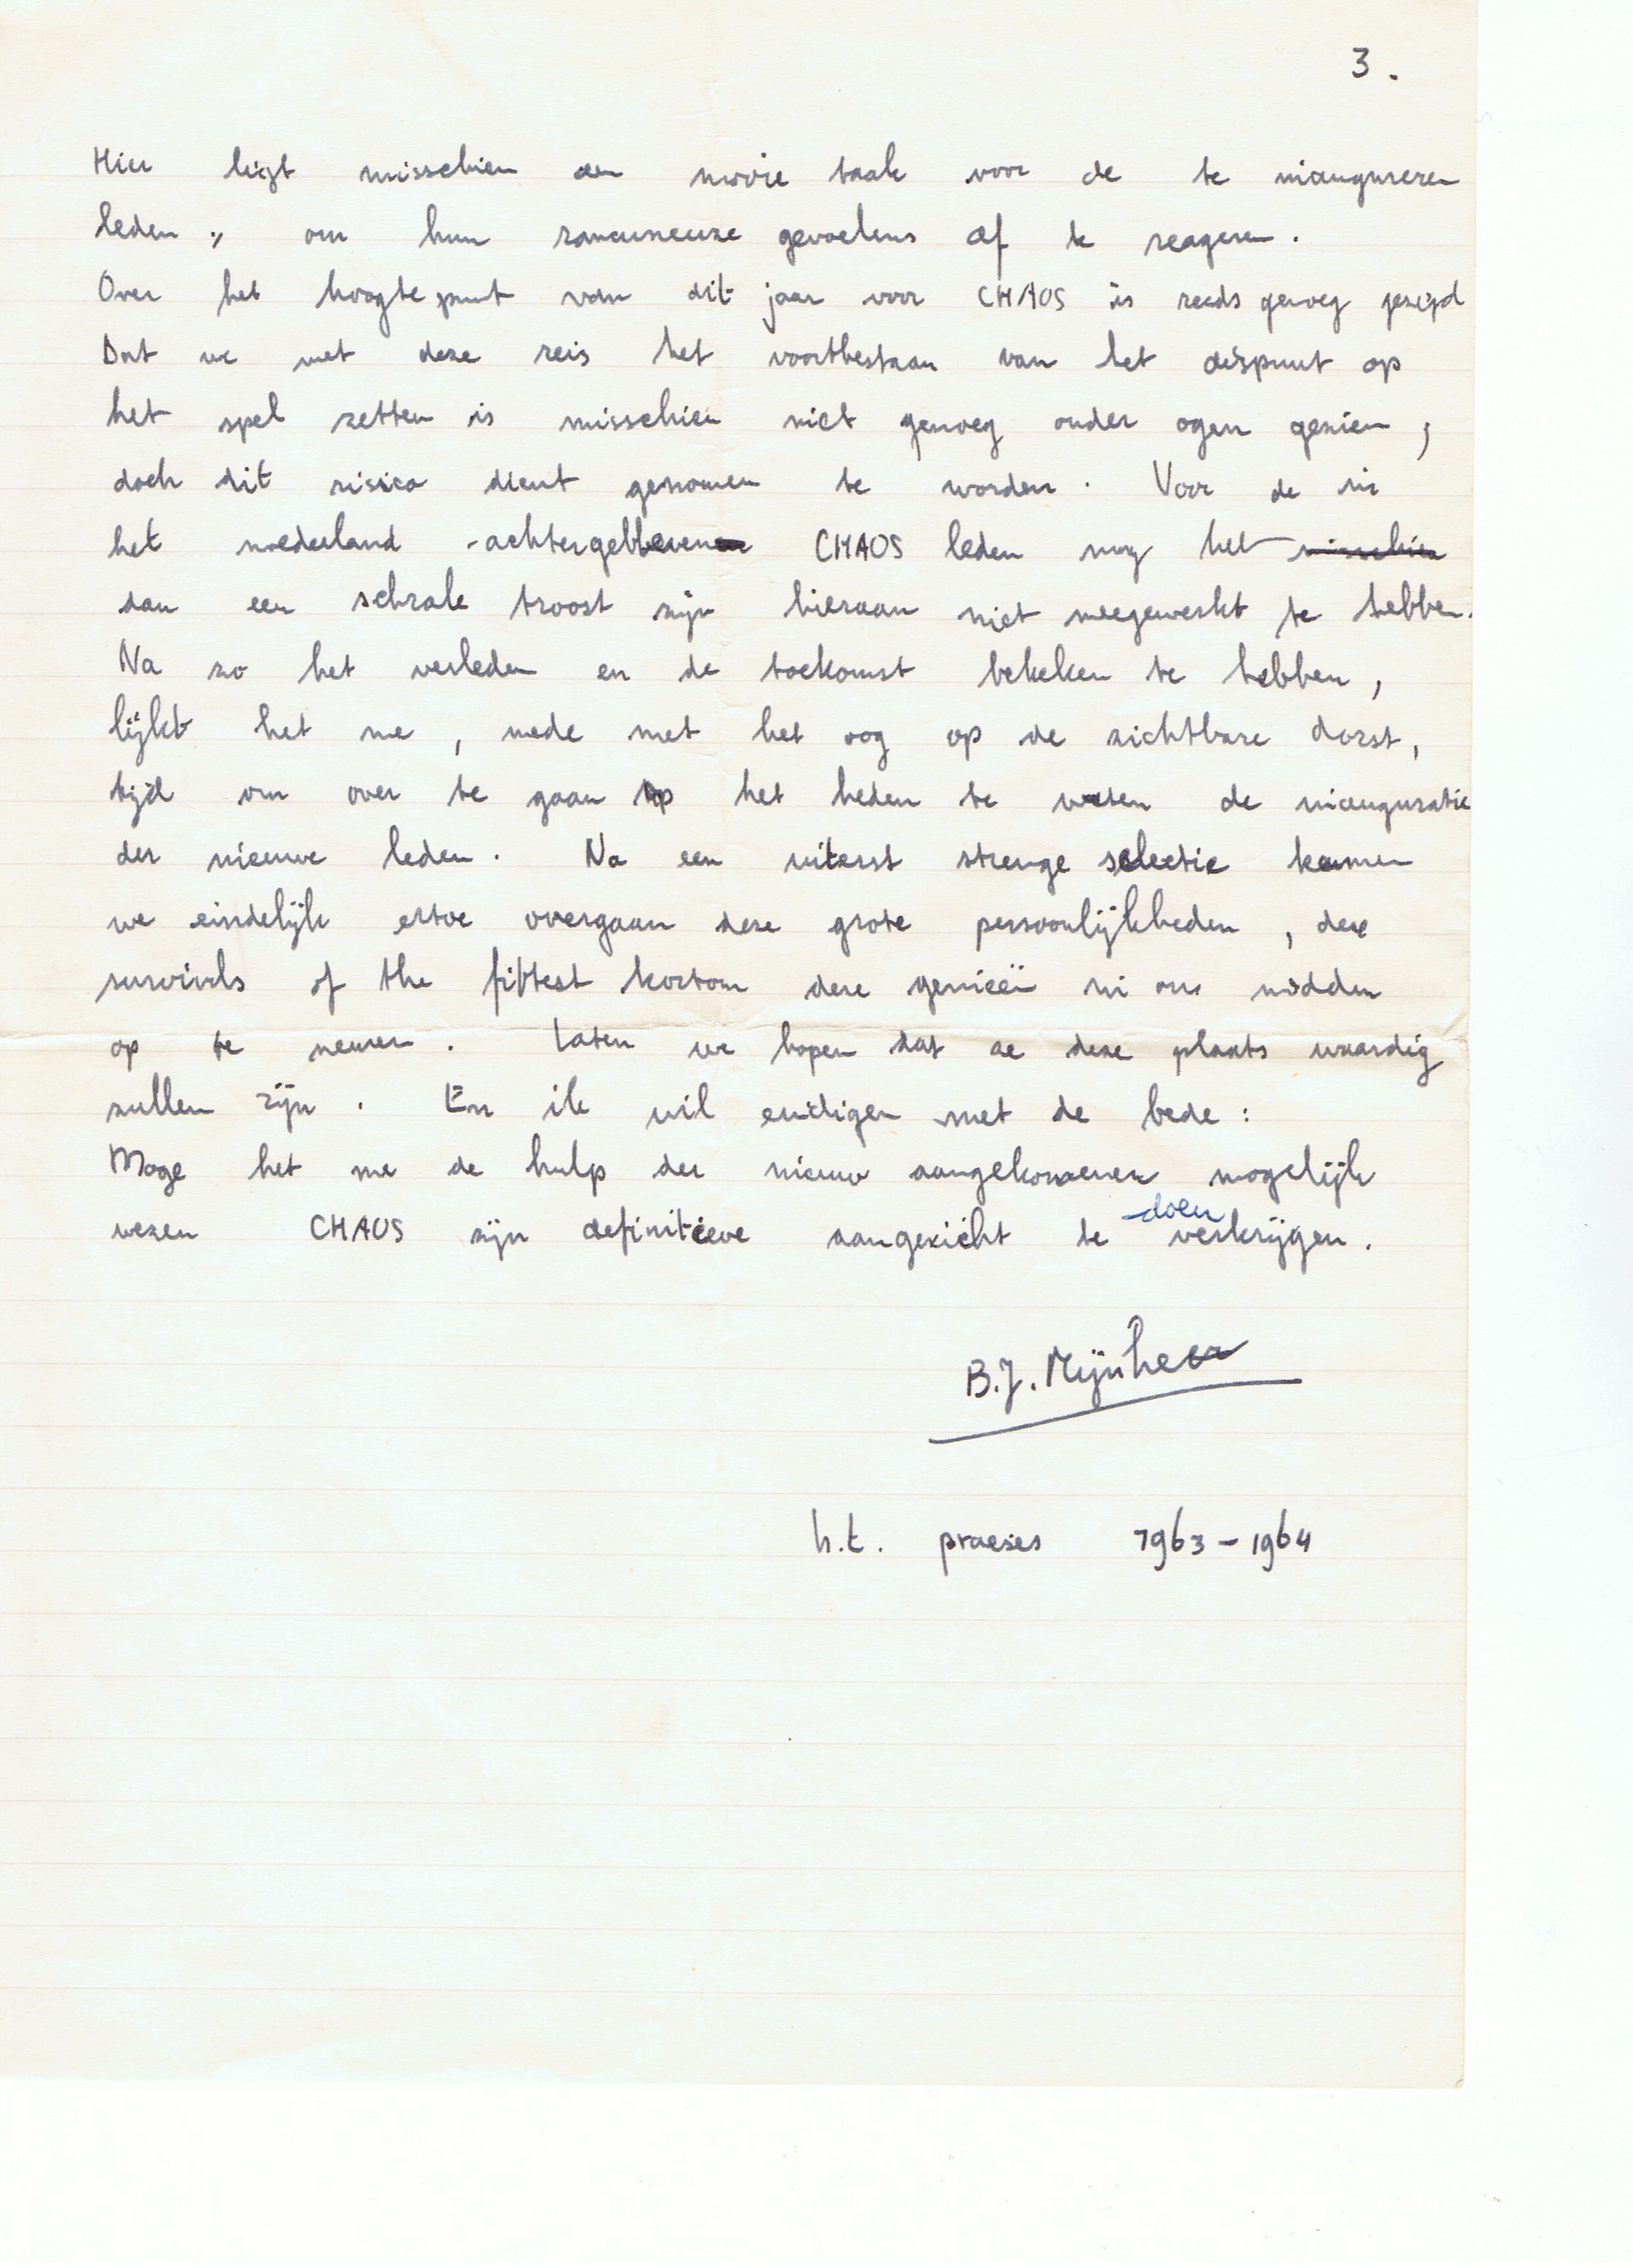 3.
Hier ligt misschien een mooie taak voor de te inaugureren
leden, om hun rancuneuze gevoelens af te reageren.
Over het hoogtepunt van dit jaar voor CHAOS is reeds genoeg gezegd
Dat we met deze reis het voortbestaan van het dispuut op
het spel zetten is misschien niet genoeg onder ogen gezien,
doch dit risico dient genomen te worden. Voor de in
het moederland achtergebleven CHAOS leden mog het misschien
dan een schrale troost zijn hieraan niet meegewerkt te hebben.
Na zo het verleden en de toekomst bekeken te hebben,
lijkt het me, mede met het oog op de zichtbare dorst,
tijd om over te gaan op het heden te weten de inauguratie
der nieuwe leden. Na een uiterst strenge selectie kunnen
we eindelijk ertoe overgaan deze grote persoonlijkheden, deze
survivals of the fittest kortom deze genieën in ons midden
op te nemen. Laten we hopen dat ze deze plaats waardig
zullen zijn. En ik wil eindigen met de bede:
Moge het me de hulp der nieuw aangekomenen mogelijk
wezen CHAOS zijn definitieve aangezicht te doen verkrijgen.
B.J. Mijnheer
h.t. praeses 1963-1964